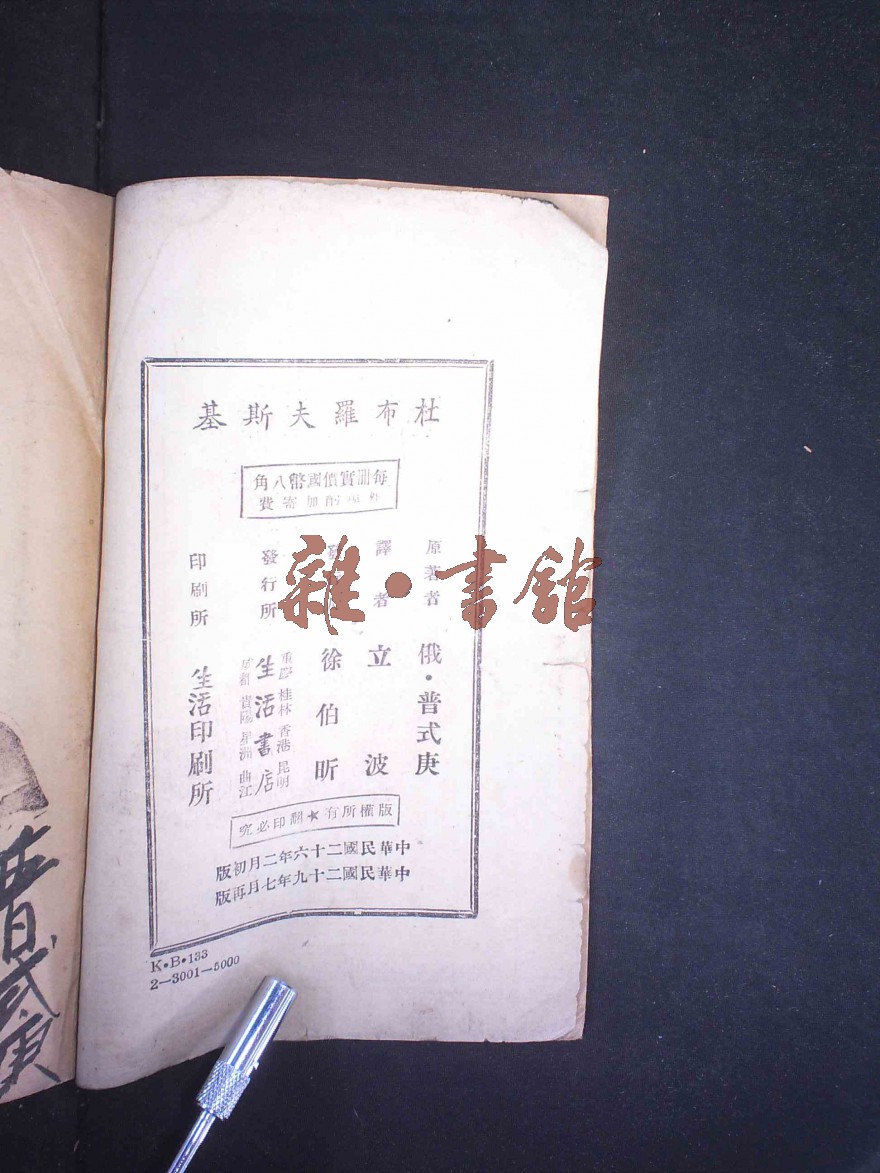 杜布羅夫斯基
每冊實價國幣八角
外埠酌加寄費
原著者 俄·普式庚
譯者 立波
徐伯昕
發行所 生活書店
重慶 桂林 香港 昆明
貴陽 星洲 曲江
印刷所 生活印刷所
版權所有★翻印必究
中華民國二十六年二月初版
中華民國二十九年七月再版
K•B•133
2—3001—5000
雜·書館
普式庚